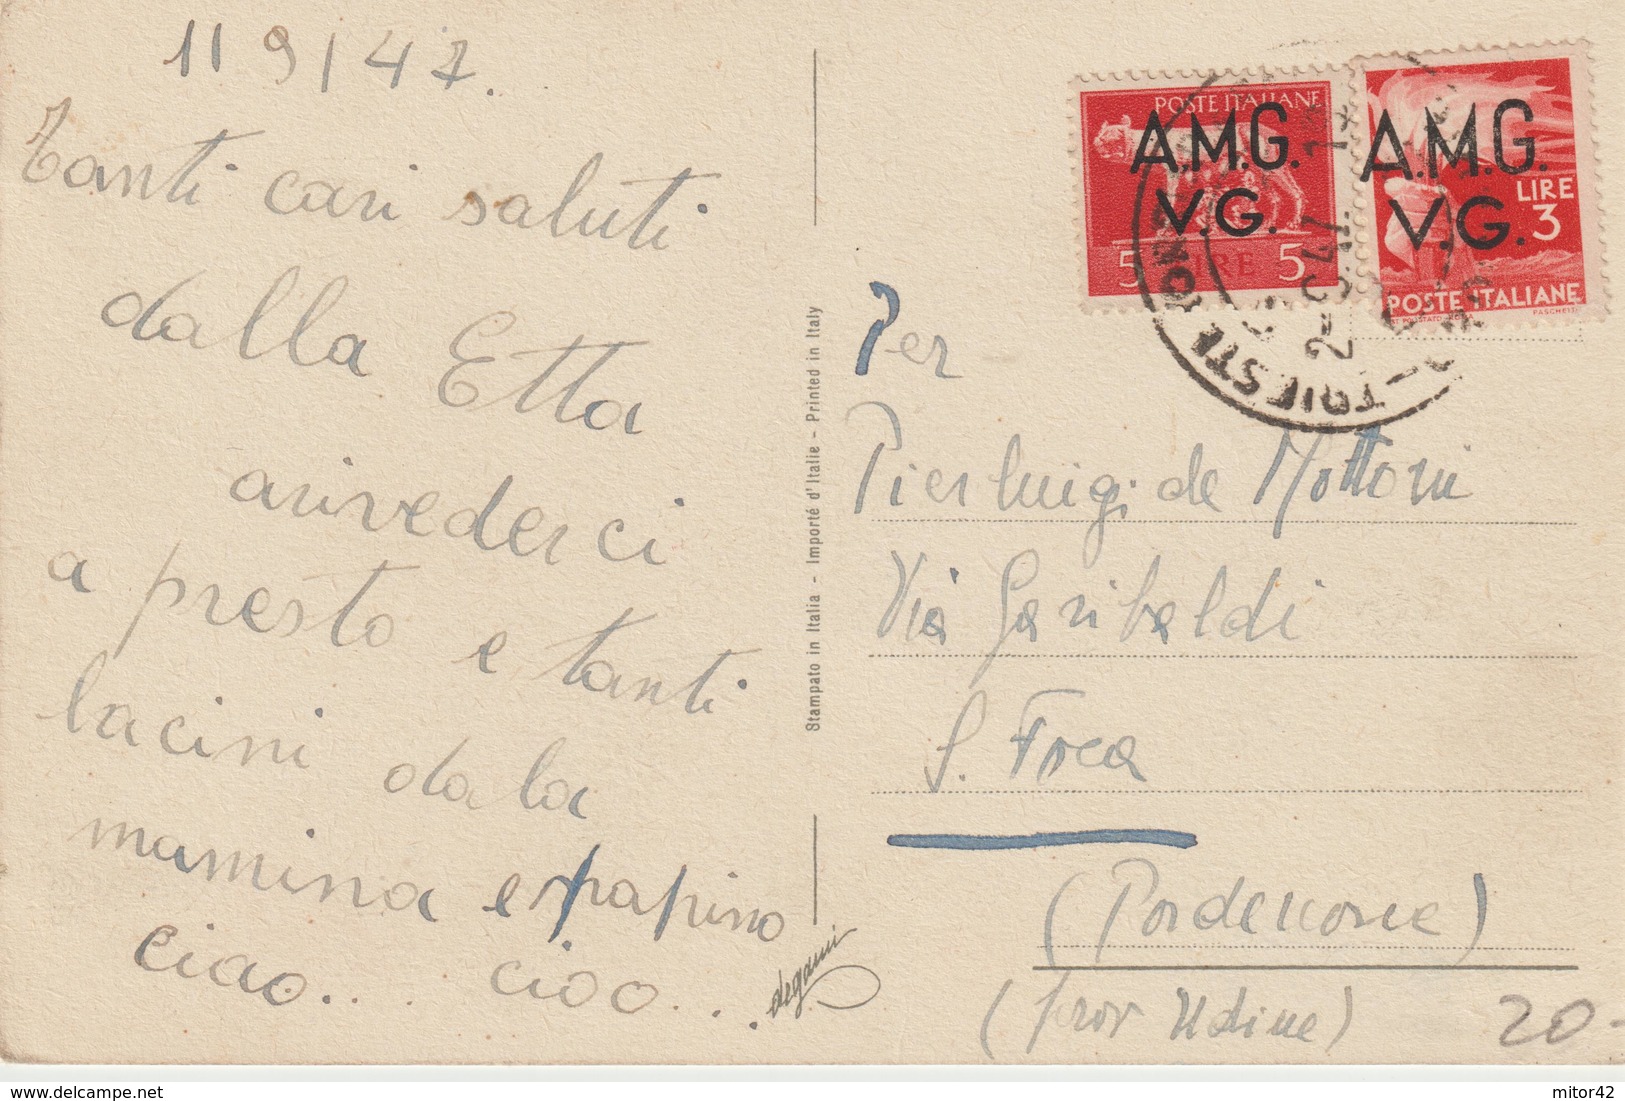 11 9/47.
Tanti cari saluti
dalla Etta
arivederci
a presto e tanti
bacini dala
mamina e papino
ciao... ciao...
Stampato in Italia - Importé d'Italie - Printed in Italy
degami
POSTE ITALIANE
A.M.G.
V.G.
5 LIRE 5
A.M.G.
V.G.
LIRE
3
POSTE ITALIANE
TRIESTE
2-9.47
Per
Pierluigi de Mottoni
Via Garibaldi
S. Foca
(Pordenone)
(prov Udine)
20-
mitor42